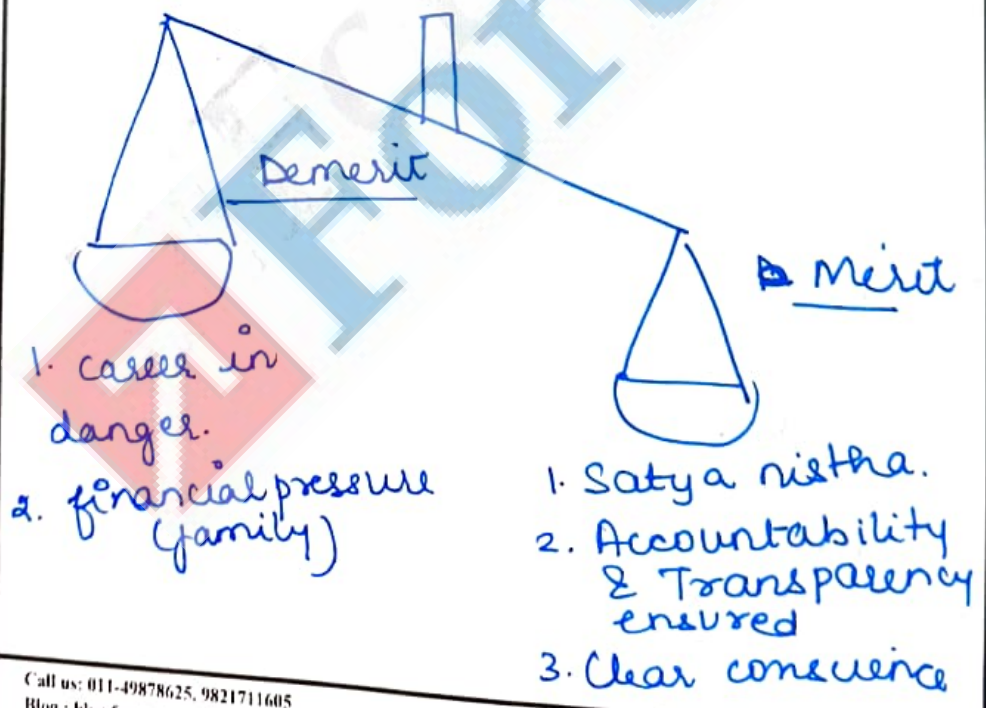 Demerit
Merit
1. career in
danger.
2. financial pressure
(family)
1. Satya nistha.
2. Accountability
& Transparency
ensured
3. Clear conscience
Call us: 011-49878625, 9821711605